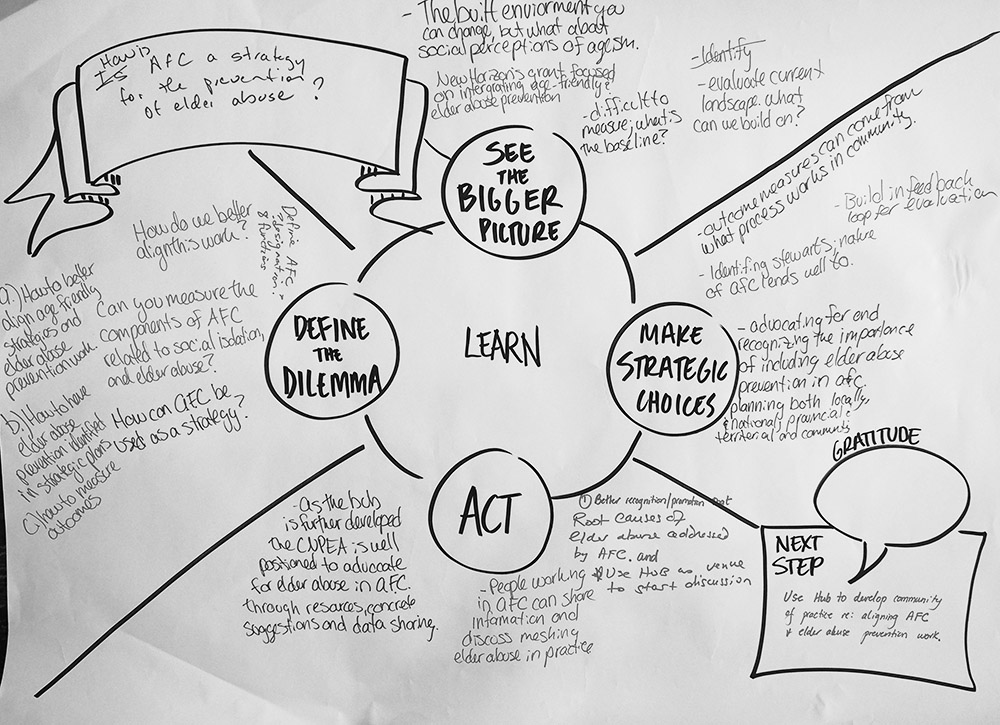 How is
Is AFC a strategy
for the prevention
of elder abuse?
- The built enviorment you
can change, but what about
social perceptions of ageism.
New Horizons grant focused
on intergrating age-friendly &
elder abuse prevention
- difficult to
measure; what's
the baseline?
- Identify
- evaluate current
landscape. what
can we build on?
SEE
THE
BIGGER
PICTURE
- outcome measures can come from
what process works in community.
- Build in feedback
loop for evaluation
- Identifing stewarts; nature
of afc lends well to.
How do we better
align this work?
Define AFC
designation &
& functions
a.) How to better
align age friendly
strategies and
elder abuse
prevention work
b.) How to have
elder abuse
prevention identified
in strategic plans
c) how to measure
outcomes
Can you measure the
components of AFC
related to social isolation,
and elder abuse?
How can AFC be
used as a strategy?
DEFINE
THE
DILEMMA
LEARN
MAKE
STRATEGIC
CHOICES
- advocating for and
recognizing the importance
of including elder abuse
prevention in afc
planning both locally,
& nationaly provincial &
territorial and community
ACT
- as the hub
is further developed
the CNPEA is well
postioned to advocate
for elder abuse in AFC.
through resources, concrete
suggestions and data sharing.
① Better recognition/promotion that
Root causes of
elder abuse addressed
by AFC, and
Use Hub as venue
to start discussion
- People working
in AFC can share
infomation and
discuss meshing
elder abuse in practice
GRATITUDE
NEXT
STEP
Use Hub to develop community
of practice re: aligning AFC
& elder abuse prevention work.